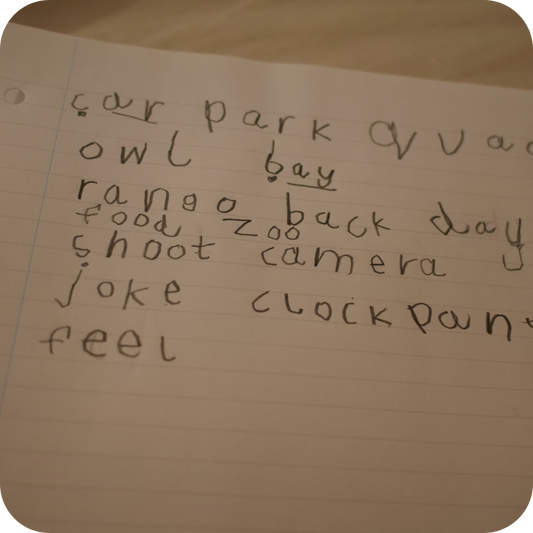 car park quac
owl bay
rango back day
food zoo
shoot camera
joke clock pant
feel